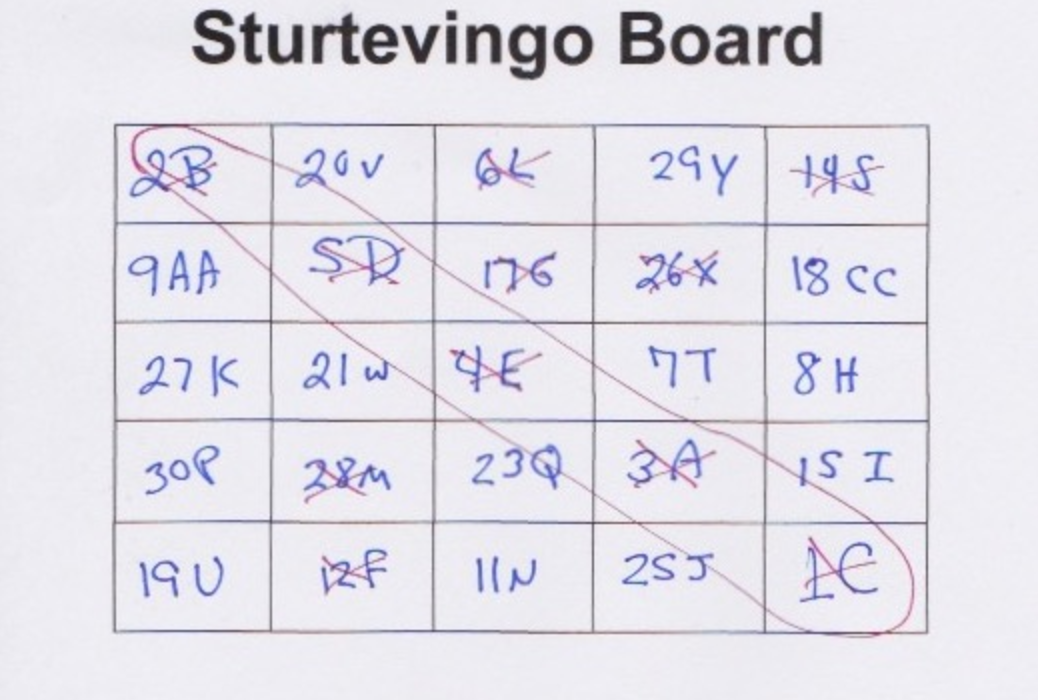 Sturtevingo Board
2B 20V 6L 29Y 14S
9AA 5D 17G 26X 18CC
27K 21W 4E 7T 8H
30P 28M 23Q 3A 15I
19U 12F 11N 25J 1C